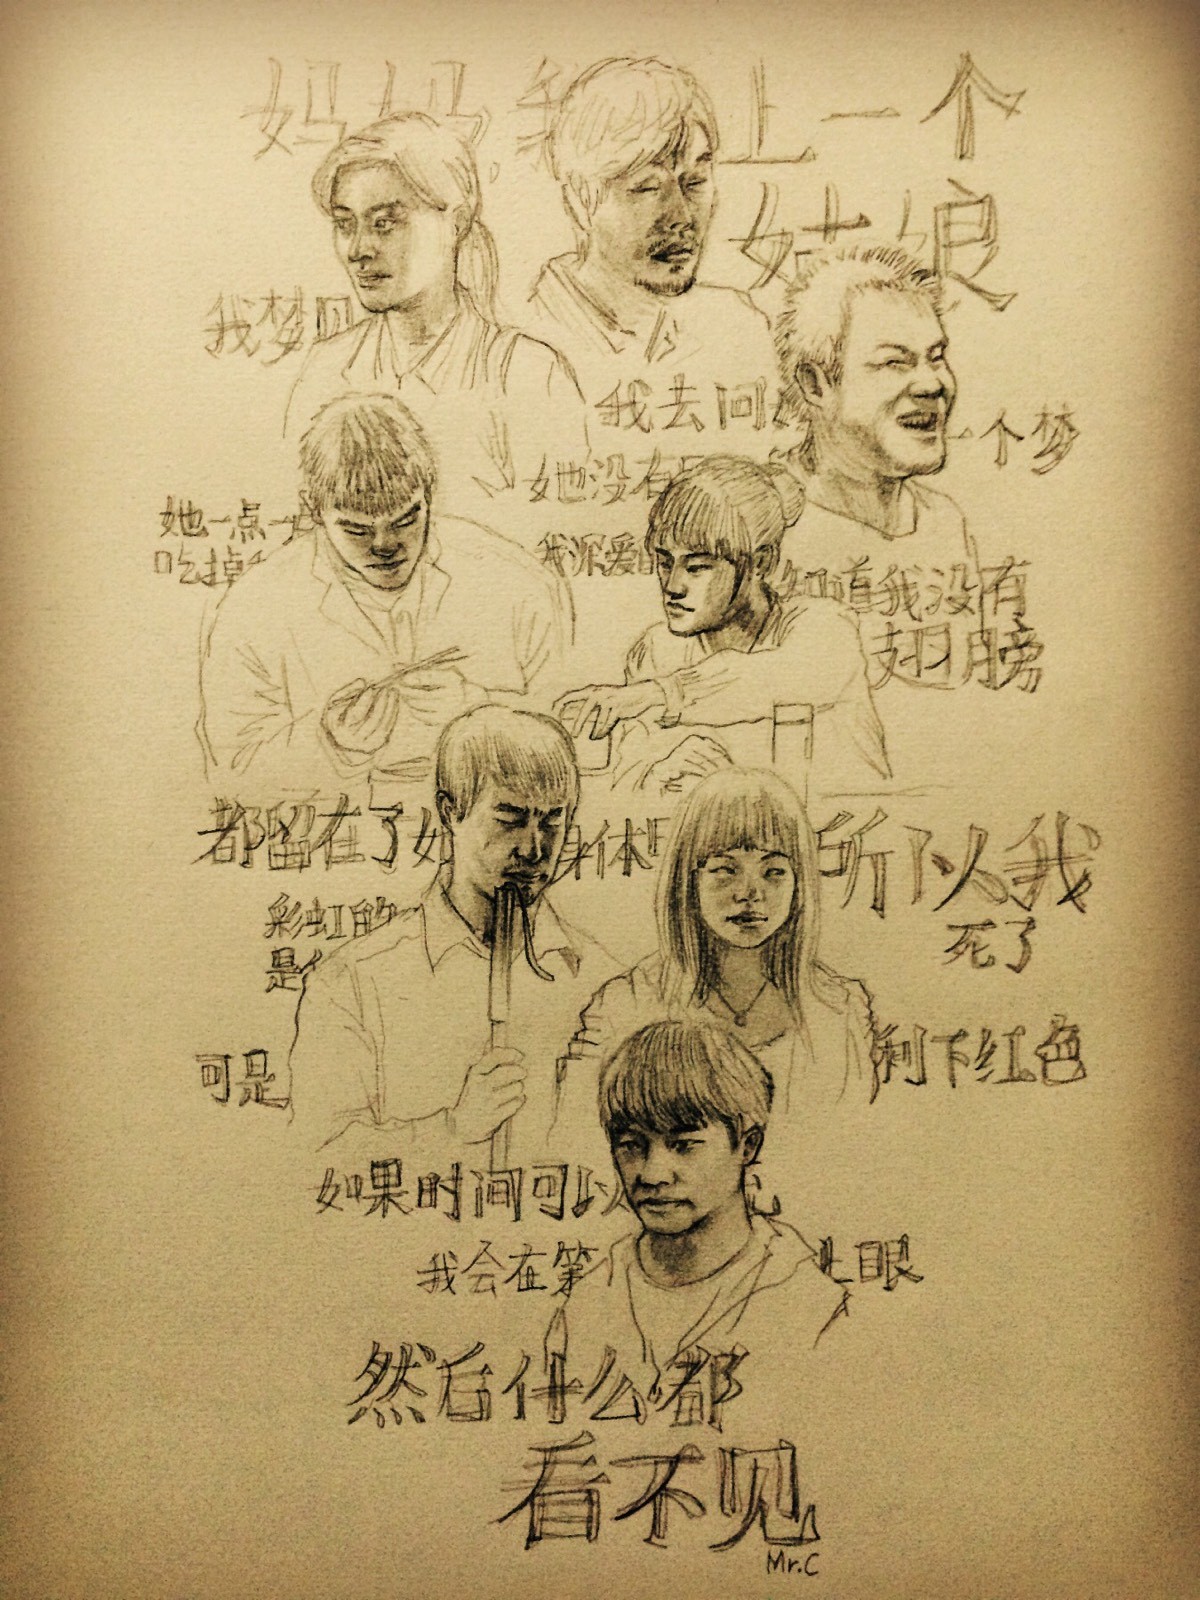 妈妈我 上一个
姑娘
我梦见
我去回 一个梦
她没有
她一点一点
吃掉
我深爱 知道我没有
翅膀
都留在了她 身体 所以我
彩虹的
死了
是
可是 剩下红色
如果时间可以
我会在第 上眼
然后什么都
看不见
Mr.C